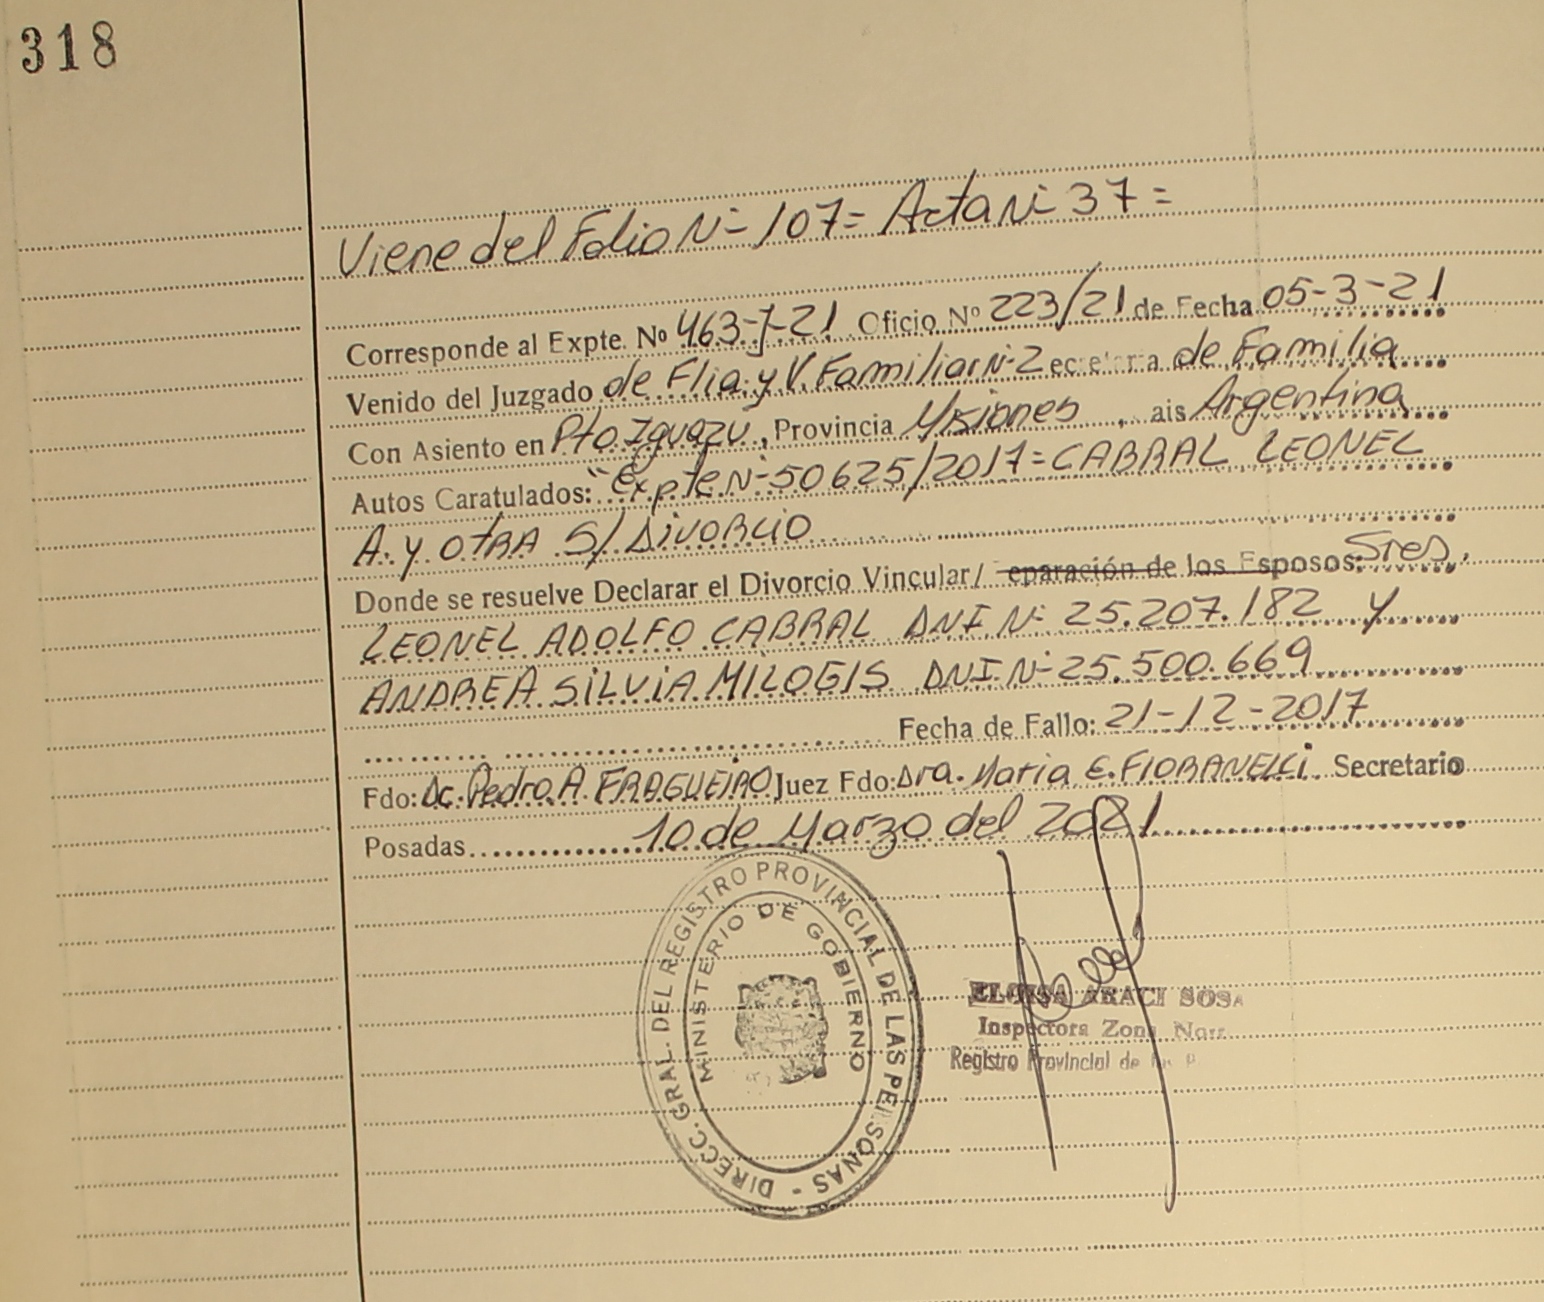 318
Viene del Folio Nº 107= Acta Nº 37=
Corresponde al Expte. Nº 463-J-21 Oficio Nº 223/21 de Fecha 05-3-21
Venido del Juzgado de Flia. y V. Familiar Nº 2 ecretaria de Familia
Con Asiento en Pto. Iguazu, Provincia Misiones, ais Argentina
Autos Caratulados: "Expte Nº 50625/2017= CABRAL LEONEL
A. y OTRA S/ DIVORCIO
Donde se resuelve Declarar el Divorcio Vincular/ eparación de los Esposos: Sres.
LEONEL ADOLFO CABRAL DNI Nº 25.207.182 y
ANDREA SILVIA MILOGIS DNI Nº 25.500.669
Fecha de Fallo: 21-12-2017
Fdo: Dr. Pedro A. FRAGUEIRO Juez Fdo: Dra. Maria E. FIORANELLI Secretario
Posadas 10 de Marzo del 2021
DIRECC. GRAL. DEL REGISTRO PROVINCIAL DE LAS PERSONAS -
MINISTERIO DE GOBIERNO
ELOISA ARACI SOSA
Inspectora Zona
Registro Provincial de